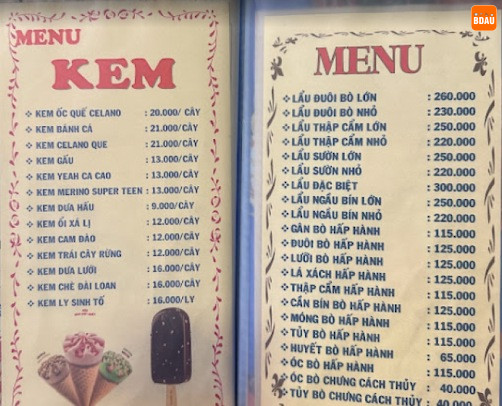 MENU
KEM
KEM ỐC QUẾ CELANO : 20.000/ CÂY
KEM BÁNH CÁ : 21.000/CÂY
KEM CELANO QUE : 21.000/CÂY
KEM GẤU : 13.000/CÂY
KEM YEAH CA CAO : 13.000/CÂY
KEM MERINO SUPER TEEN : 13.000/CÂY
KEM DƯA HẤU : 9.000/CÂY
KEM ỔI XÁ LỊ : 12.000/CÂY
KEM CAM ĐÀO : 12.000/CÂY
KEM TRÁI CÂY RỪNG : 12.000/CÂY
KEM DƯA LƯỚI : 16.000/CÂY
KEM CHÈ ĐÀI LOAN : 16.000/CÂY
KEM LY SINH TỐ : 16.000/LY
BỞ ĐÂU
MENU
LẨU ĐUÔI BÒ LỚN : 260.000
LẨU ĐUÔI BÒ NHỎ : 230.000
LẨU THẬP CẨM LỚN : 250.000
LẨU THẬP CẨM NHỎ : 220.000
LẨU SƯỜN LỚN : 250.000
LẨU SƯỜN NHỎ : 220.000
LẨU ĐẶC BIỆT : 300.000
LẨU NGẦU BÍN LỚN : 250.000
LẨU NGẦU BÍN NHỎ : 220.000
GÂN BÒ HẤP HÀNH : 115.000
ĐUÔI BÒ HẤP HÀNH : 125.000
LƯỠI BÒ HẤP HÀNH : 125.000
LÁ XÁCH HẤP HÀNH : 115.000
THẬP CẨM HẤP HÀNH : 125.000
CẦN BÍN BÒ HẤP HÀNH : 115.000
MÓNG BÒ HẤP HÀNH : 115.000
TỦY BÒ HẤP HÀNH : 115.000
HUYẾT BÒ HẤP HÀNH : 65.000
ÓC BÒ HẤP HÀNH : 115.000
ÓC BÒ CHƯNG CÁCH THỦY : 40.000
TỦY BÒ CHƯNG CÁCH THỦY : 40.000